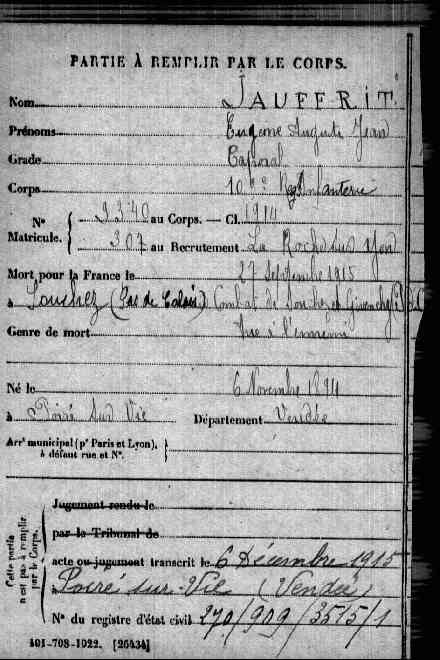 PARTIE À REMPLIR PAR LE CORPS.
Nom JAUFFRIT
Prénoms Eugène Auguste Jean
Grade Caporal
Corps Regt Infanterie
N° Matricule. { 9340 au Corps. — Cl. 1914
307 au Recrutement La Roche sur Yon
Mort pour la France le 27 Septembre 1915
à Souchez (Pas de Calais) Combat de Souchez et Givenchy
Genre de mort Tué à l'ennemi
Né le 6 Novembre 1894
à Poiré sur Vie Département Vendée
Arr^t municipal (p^r Paris et Lyon), à défaut rue et N°.
Cette partie n'est pas à remplir par le Corps.
Jugement rendu le
par le Tribunal de
acte ou jugement transcrit le 6 Décembre 1915
à Poiré sur Vie (Vendée)
N° du registre d'état civil 270/909/3515/1
101-708-1922. [26434]